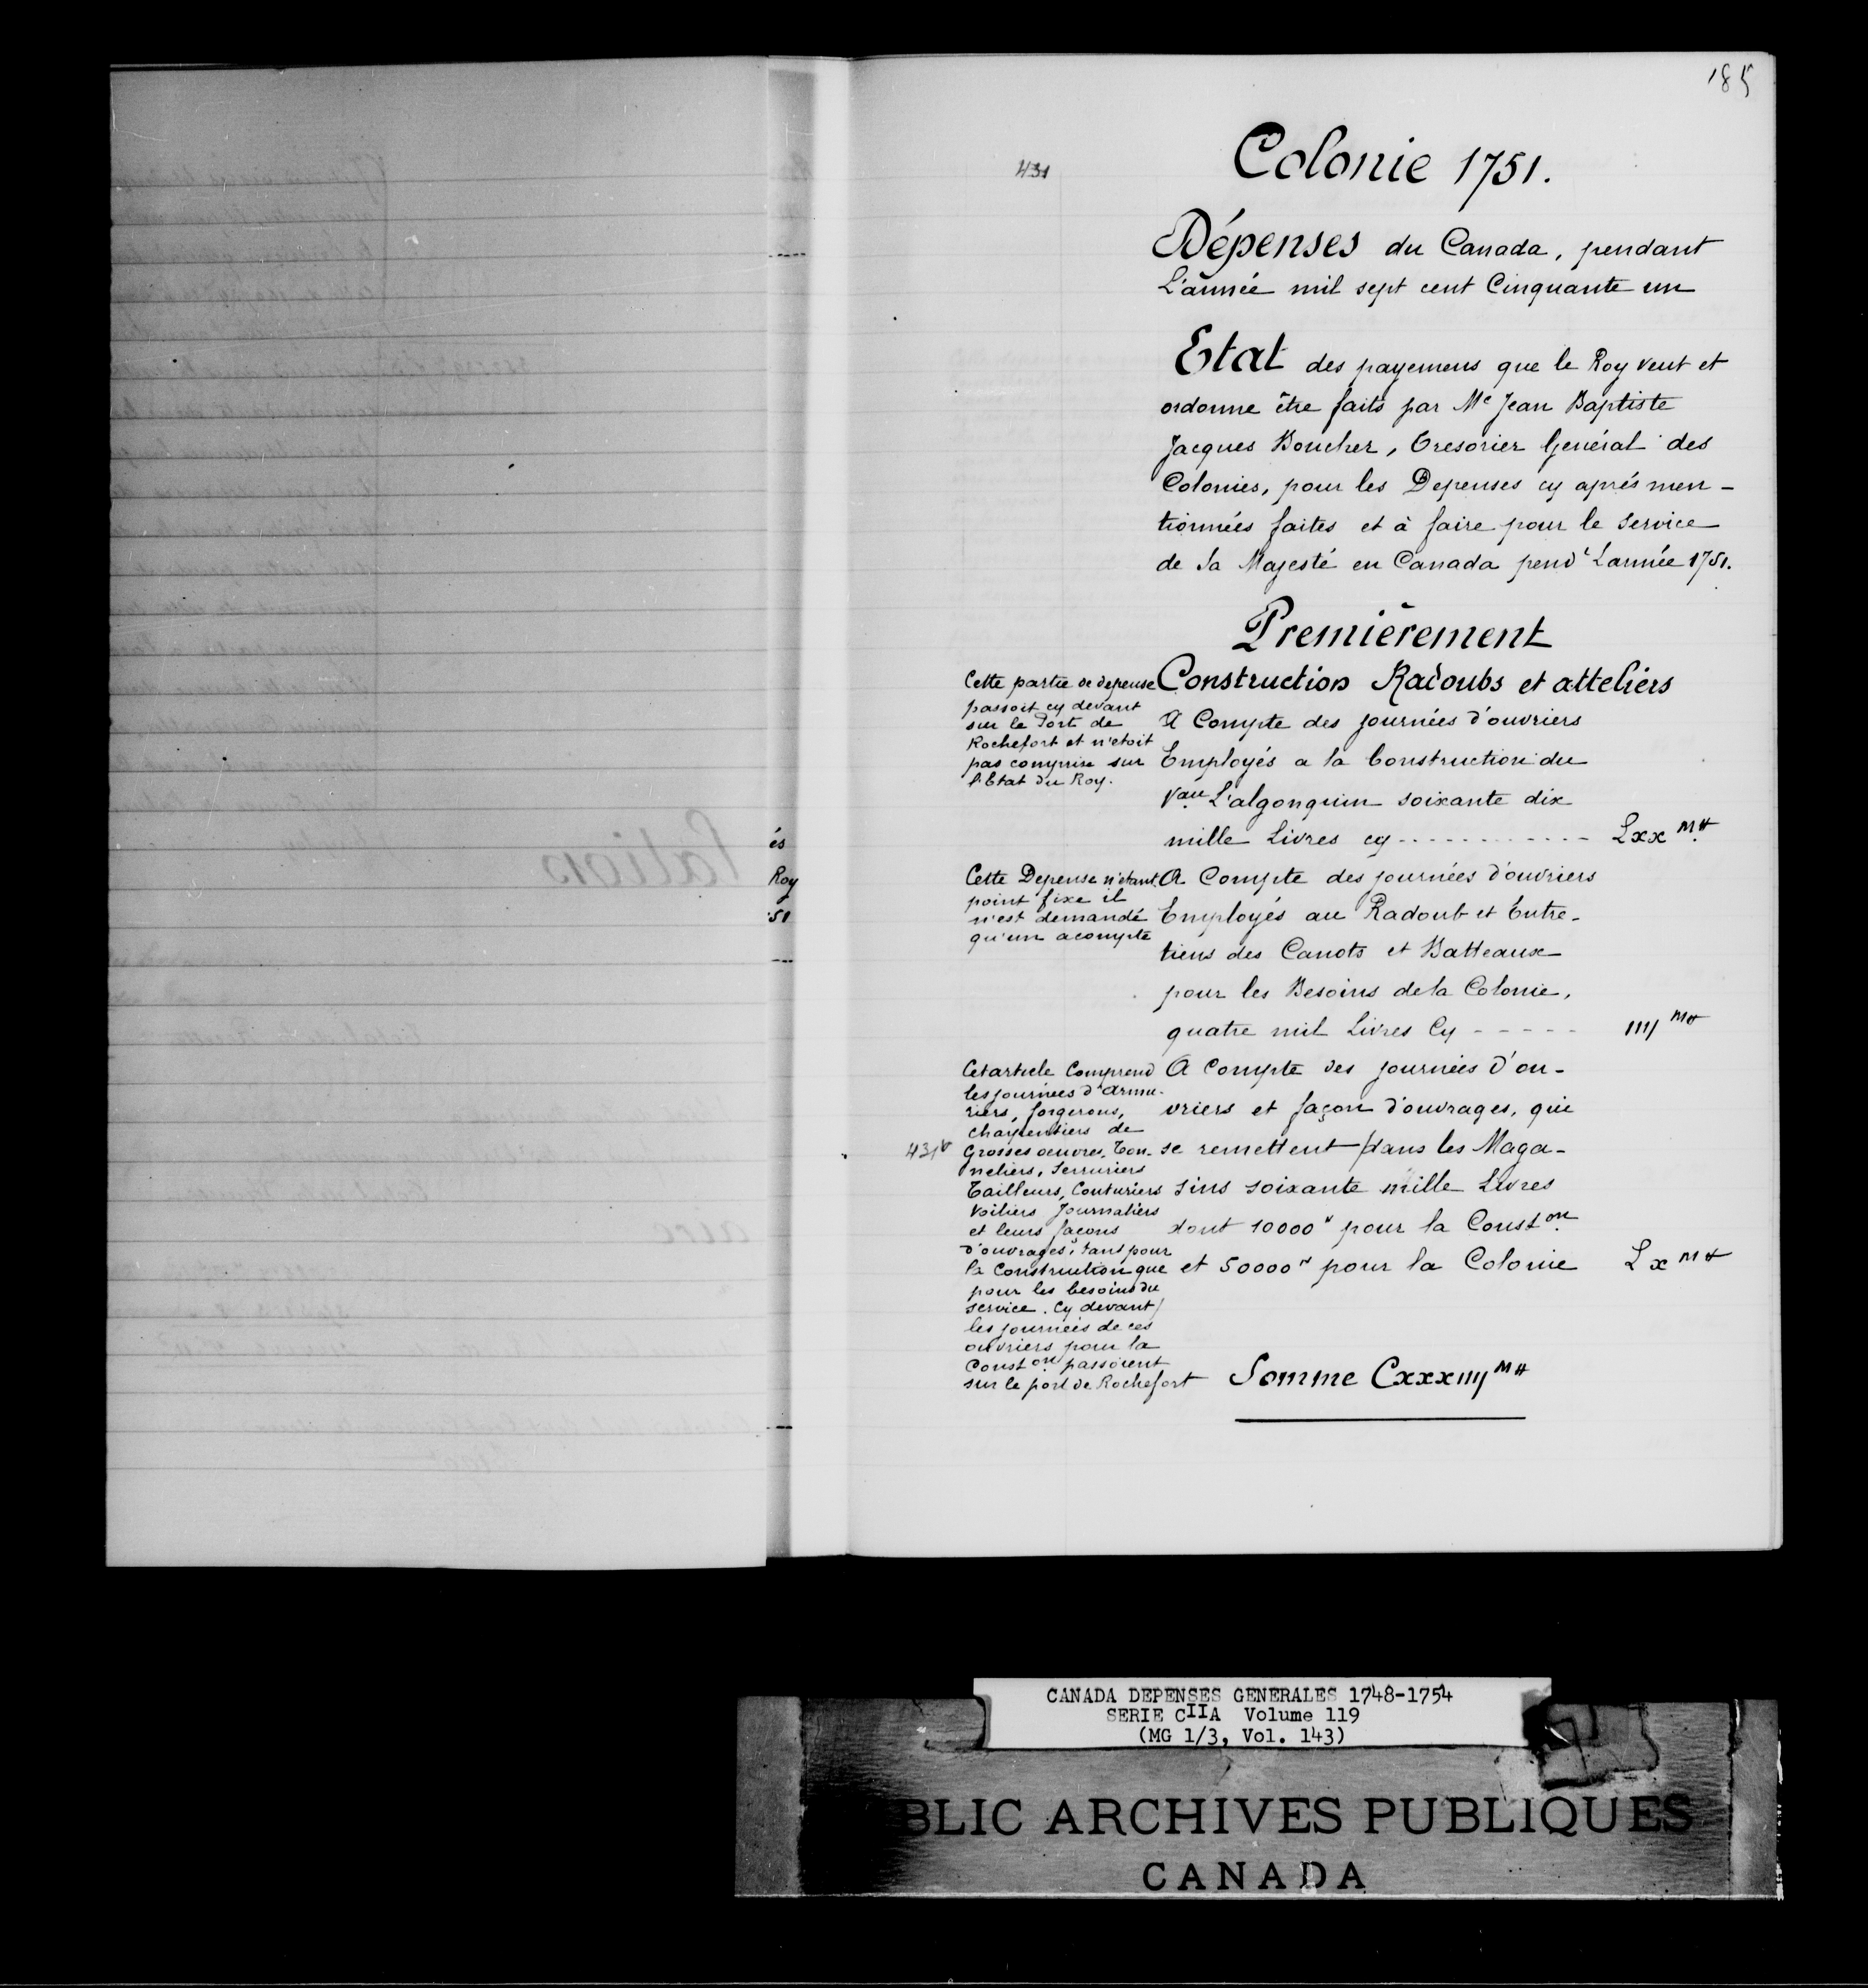 185
431
Colonie 1751.
Dépenses du Canada, pendant
L'année mil sept cent Cinquante un
Etat des payemens que le Roy veut et
ordonne être faits par Mᵉ Jean Baptiste
Jacques Boucher, Tresorier Genéral des
Colonies, pour les Depenses cy aprés men-
tionnées faites et à faire pour le Service
de Sa Majesté en Canada pendᵗ L'année 1751.
Premièrement
Construction Radoubs et atteliers
Cette partie de depense
passoit cy devant
sur le Port de
Rochefort et n'etoit
pas comprise sur
l'Etat du Roy.
A Compte des journées d'ouvriers
Employés a la Construction du
Vᵃᵘ L'algonquin soixante dix
mille Livres cy ------------ Lxx ᴹ ᵗᵗ
Cette Depense n'etant
point fixe il
n'est demandé
qu'un acompte
A Compte des journées d'ouvriers
Employés au Radoub et Entre-
tiens des Canots et Batteaux
pour les Besoins de la Colonie,
quatre mil Livres Cy ----- iiij ᴹ ᵗᵗ
Cet article Comprend
les journées d'Armu-
riers, forgerons,
charpentiers de
431ᵛ
Grosses oeuvres, Ton-
neliers, Serruriers
Tailleurs, Couturiers
Voiliers Journaliers
et leurs façons
d'ouvrages, tant pour
la Construction que
pour les besoins du
service. Cy devant
les journées de ces
ouvriers pour la
Constᵒⁿ passoient
sur le port de Rochefort
A Compte des journées d'ou-
vriers et façon d'ouvrages, qui
se remettent dans les Maga-
sins soixante mille Livres
dont 10000ᵗᵗ pour la Constᵒⁿ
et 50000ᵗᵗ pour la Colonie Lx ᴹ ᵗᵗ
Somme Cxxxiiij ᴹ ᵗᵗ
és
Roy
51
CANADA DEPENSES GENERALES 1748-1754
SERIE CIIA Volume 119
(MG 1/3, Vol. 143)
BLIC ARCHIVES PUBLIQUES
CANADA